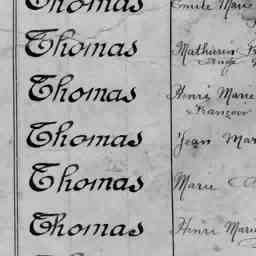 Thomas Emile Marie
Thomas Mathurin
Ange
Thomas Henri Marie
François
Thomas Jean Mar
Thomas Marie
Thomas Henri Marie